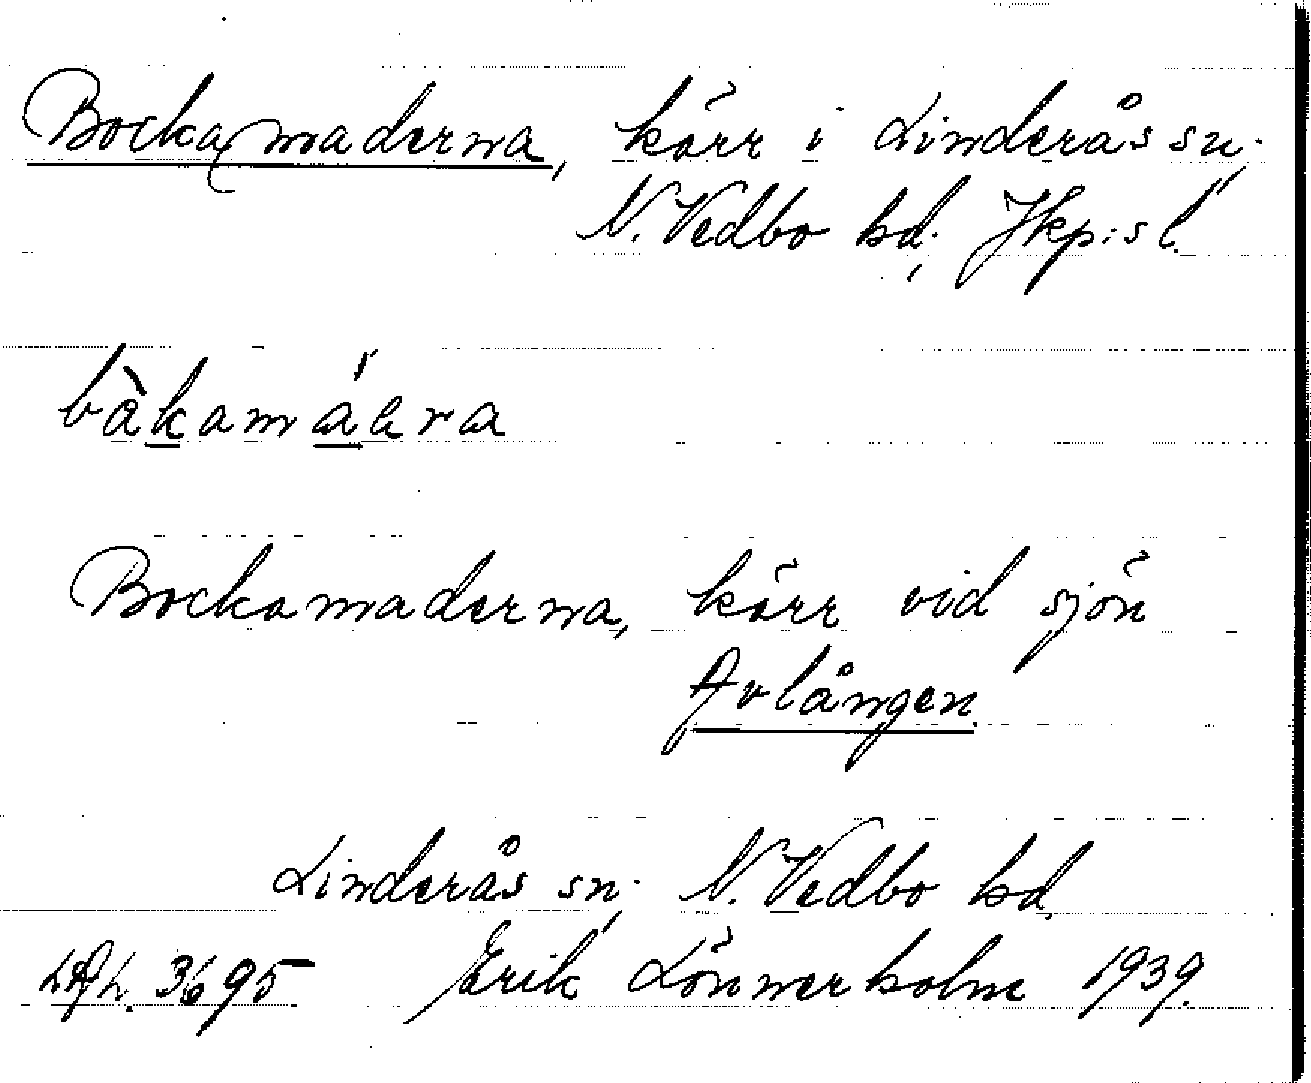 Bockamaderna, kärr i Linderås sn.
N. Vedbo hd, Jkp:s l.
bàkamáera
Bockamaderna, kärr vid sjön
Avlången.
Linderås sn, N. Vedbo hd.
3695 Erik Lönnerholm 1939.